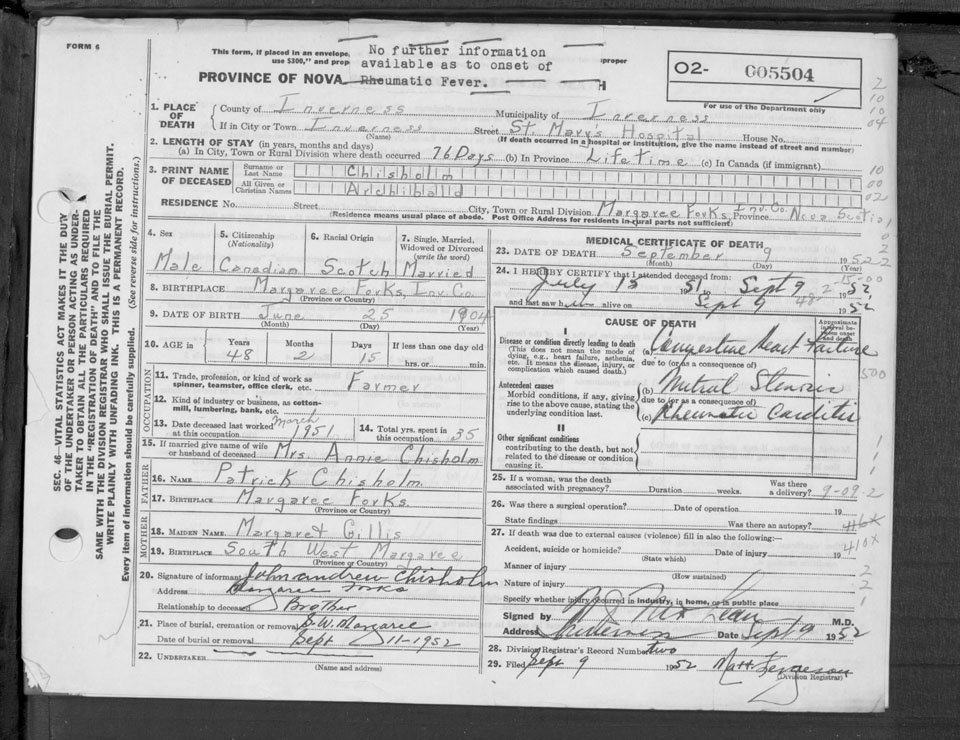 FORM 6
This form, if placed in an envelope,
use $300," and prop
No further information
available as to onset of
Rheumatic Fever.
proper
PROVINCE OF NOVA
H
O2- 005504
For use of the Department only
1. PLACE OF DEATH
County of Inverness Municipality of Inverness
If in City or Town Inverness Street St. Marys Hospital House No.
(Name) (If death occurred in a hospital or institution, give the name instead of street and number)
2. LENGTH OF STAY (in years, months and days)
(a) In City, Town or Rural Division where death occurred 76 Days (b) In Province Lifetime (c) In Canada (if immigrant)
3. PRINT NAME OF DECEASED
Surname or Last Name Chisholm
All Given or Christian Names Archibald
RESIDENCE No. Street City, Town or Rural Division Margaree Forks, Inv. Co. Province Nova Scotia
(Residence means usual place of abode. Post Office Address for residents in rural parts not sufficient)
4. Sex Male
5. Citizenship (Nationality) Canadian
6. Racial Origin Scotch
7. Single, Married, Widowed or Divorced (write the word) Married
8. BIRTHPLACE Margaree Forks, Inv. Co.
(Province or Country)
9. DATE OF BIRTH June 25 1904
(Month) (Day) (Year)
10. AGE in Years 48 Months 2 Days 15 If less than one day old
hrs. or min.
OCCUPATION
11. Trade, profession, or kind of work as spinner, teamster, office clerk, etc. Farmer
12. Kind of industry or business, as cotton-mill, lumbering, bank, etc.
13. Date deceased last worked at this occupation March 1951
14. Total yrs. spent in this occupation 35
15. If married give name of wife or husband of deceased Mrs. Annie Chisholm
FATHER
16. NAME Patrick Chisholm.
17. BIRTHPLACE Margaree Forks.
(Province or Country)
MOTHER
18. MAIDEN NAME Margaret Gillis
19. BIRTHPLACE South West Margaree
(Province or Country)
20. Signature of informant John andrew Chisholm
Address Margaree Forks
Relationship to deceased Brother
21. Place of burial, cremation or removal S.W. Margaree
Date of burial or removal Sept 11-1952
22. UNDERTAKER
(Name and address)
MEDICAL CERTIFICATE OF DEATH
23. DATE OF DEATH September 9 1952
(Month) (Day) (Year)
24. I HEREBY CERTIFY that I attended deceased from:
July 13 1951 to Sept 9 1952
and last saw him alive on Sept 9 1952
CAUSE OF DEATH
Approximate interval between onset and death
I
Disease or condition directly leading to death
(This does not mean the mode of dying, e.g., heart failure, asthenia, etc. It means the disease, injury, or complication which caused death.)
(a) Congestive Heart Failure
due to (or as a consequence of)
Antecedent causes
Morbid conditions, if any, giving rise to the above cause, stating the underlying condition last.
(b) Mitral Stenosis
due to (or as a consequence of)
(c) Rheumatic Carditis
II
Other significant conditions
contributing to the death, but not related to the disease or condition causing it.
25. If a woman, was the death associated with pregnancy? Duration weeks. Was there a delivery? 9-09-2
26. Was there a surgical operation? Date of operation 19
State findings Was there an autopsy?
27. If death was due to external causes (violence) fill in also the following:-
Accident, suicide or homicide? Date of injury 19 410x
(State which)
Manner of injury
(How sustained)
Nature of injury
Specify whether injury occurred in industry, in home, or in public place
Signed by M.D.
Address Inverness Date Sept 9 1952
28. Division Registrar's Record Number two
29. Filed Sept 9 1952 Matt Ferguson
(Division Registrar)
SEC. 46—VITAL STATISTICS ACT MAKES IT THE DUTY
OF THE UNDERTAKER OR PERSON ACTING AS UNDER-
TAKER TO OBTAIN ALL THE PARTICULARS REQUIRED
IN THE "REGISTRATION OF DEATH" AND TO FILE THE
SAME WITH THE DIVISION REGISTRAR WHO SHALL ISSUE THE BURIAL PERMIT.
WRITE PLAINLY WITH UNFADING INK. THIS IS A PERMANENT RECORD.
Every item of information should be carefully supplied. (See reverse side for instructions.)